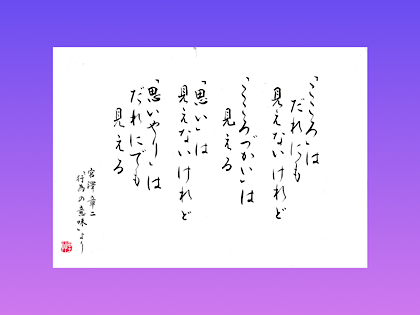 「こころ」は
だれにも
見えないけれど
「こころづかい」は
見える
「思い」は
見えないけれど
「思いやり」は
だれにでも
見える
宮澤章二
「行為の意味」より